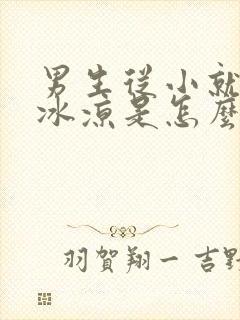 男生從小就
冰涼是怎麼
羽賀翔一 吉野